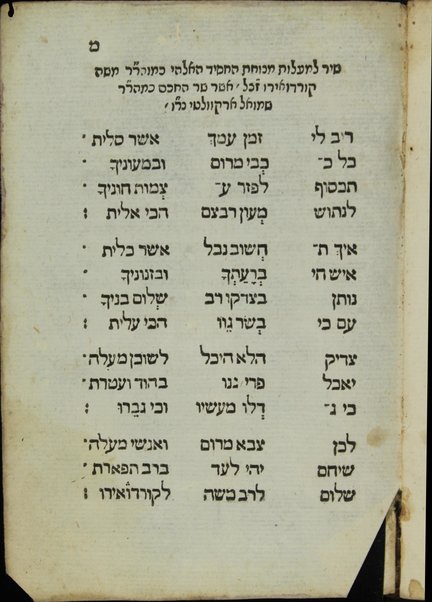 מ
שיר למעלות מנוחת החסיד האלהי כמוהר״ר משה
קורדואירו זכל׳ אשר שר החכם כמהר״ר
שמואל ארקוולטי נר״ו׳
ריב לי זמן עמך אשר סלית
בל כ־ בבי מרום ובמעוניך
תכסוף לפזר ע־ צמות חוניך
לנתוש מעון רבצם הכי אלית :
איך ת־ חשוב נבל אשר כלית
איש חי ברעתך ובזנוניך
נותן בצדקו רב שלום בניך
עם כי בשר גוו הכי עלית :
צדיק הלא היכל לשוכן מעלה
יאכל פרי גנו בהוד ועטרת
כי ג־ דלו מעשיו וכי גברו :
לכן צבא מרום ואנשי מעלה
שיחם יהי לעד ברב תפארת
שלום לרב משה לקורדואירו :